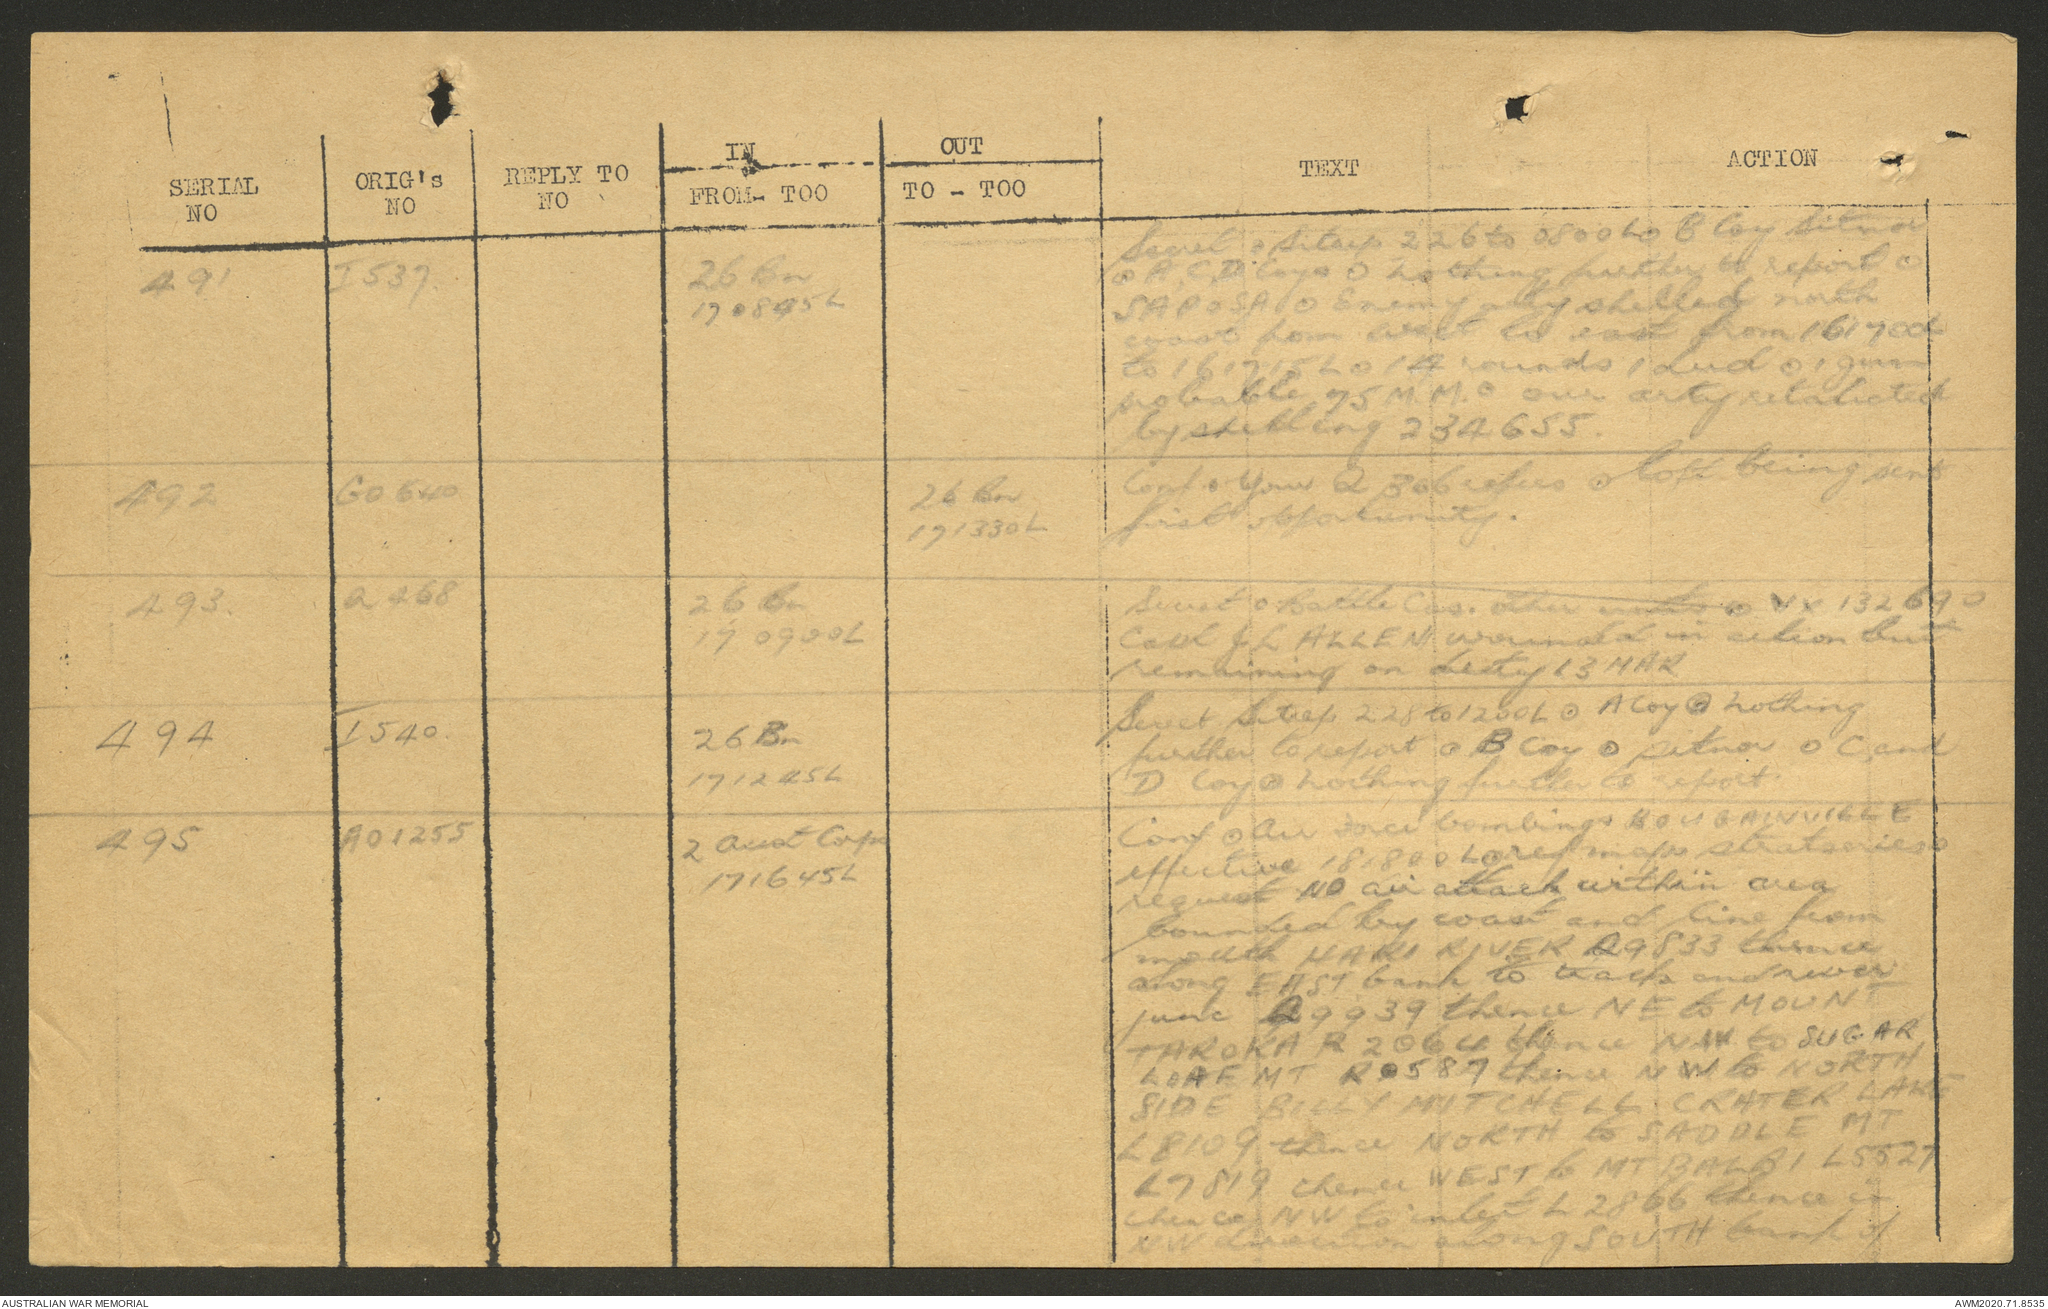 SERIAL NO
ORIG's NO
REPLY TO NO
IN
FROM - TOO
OUT
TO - TOO
TEXT
ACTION
491
I 537.
26 Bn
170845L
Secret o Sitrep 226 to 0800L o B Coy Sitnor
o A, C, D Coys o nothing further to report o
SAPOSA o Enemy arty shelled north
coast from west to east from 161700L
to 161715L o 14 rounds 1 dud o 1 gun
probable 75 M.M. o our arty retaliated
by shelling 234655.
492
GO 640
26 Bn
171330L
Conf o Your Q 306 refers o being sent
first opportunity.
493.
Q 468
26 Bn
170900L
Secret o Battle Cas. other o VX 132690
J L ALLEN wounded in action but
remaining on duty 13 MAR
494
I 540.
26 Bn
171245L
Secret Sitrep 228 to 1200L o A Coy o nothing
further to report o B Coy o sitnor o C and
D Coy o nothing further to report.
495
AO 1255
2 Aust Corps
171645L
Conf o Air force bombings BOUGAINVILLE
effective 181800L o ref maps strat series o
request NO air attack within area
bounded by coast and line from
mouth HARI RIVER Q9833 thence
along EAST bank to track and river
junc Q9939 thence NE to MOUNT
TAROKA R2064 thence NW to SUGAR
LOAF MT R0587 thence NW to NORTH
SIDE BILLY MITCHELL CRATER LAKE
L8109 thence NORTH to SADDLE MT
L7819 thence WEST to MT BALBI L5527
thence NW to inlet L2866 thence in
NW direction along SOUTH bank of
AUSTRALIAN WAR MEMORIAL
AWM2020.71.8535